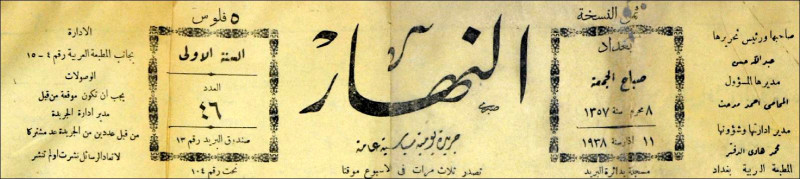 صاحبها ورئيس تحريرها
عبدالله حسن
مديرها المسؤول
المحامي احمد مدحت
مدير ادارتها وشؤونها
محمد هادي الدفتر
المطبعة العربية بغداد
ثمن النسخة
بغداد
صباح الجمعة
٨ محرم سنة ١٣٥٧
١١ اذار سنة ١٩٣٨
مسجلة بدائرة البريد
النهار
جريدة يومية سياسية عامة
تصدر ثلاث مرات في الاسبوع موقتا
٥ فلوس
السنة الاولى
العدد
٤٦
صندوق البريد رقم ١٣
تحت رقم ١٠٤
الادارة
بجانب المطبعة العربية رقم ٤ - ١٥
الوصولات
يجب ان تكون موقعة من قبل
مدير ادارة الجريدة
من قبل عددين من الجريدة عد مشتركا
لا تعاد الرسائل نشرت او لم تنشر